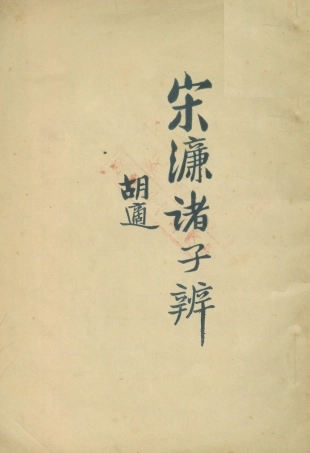 宋濂诸子辨
胡適